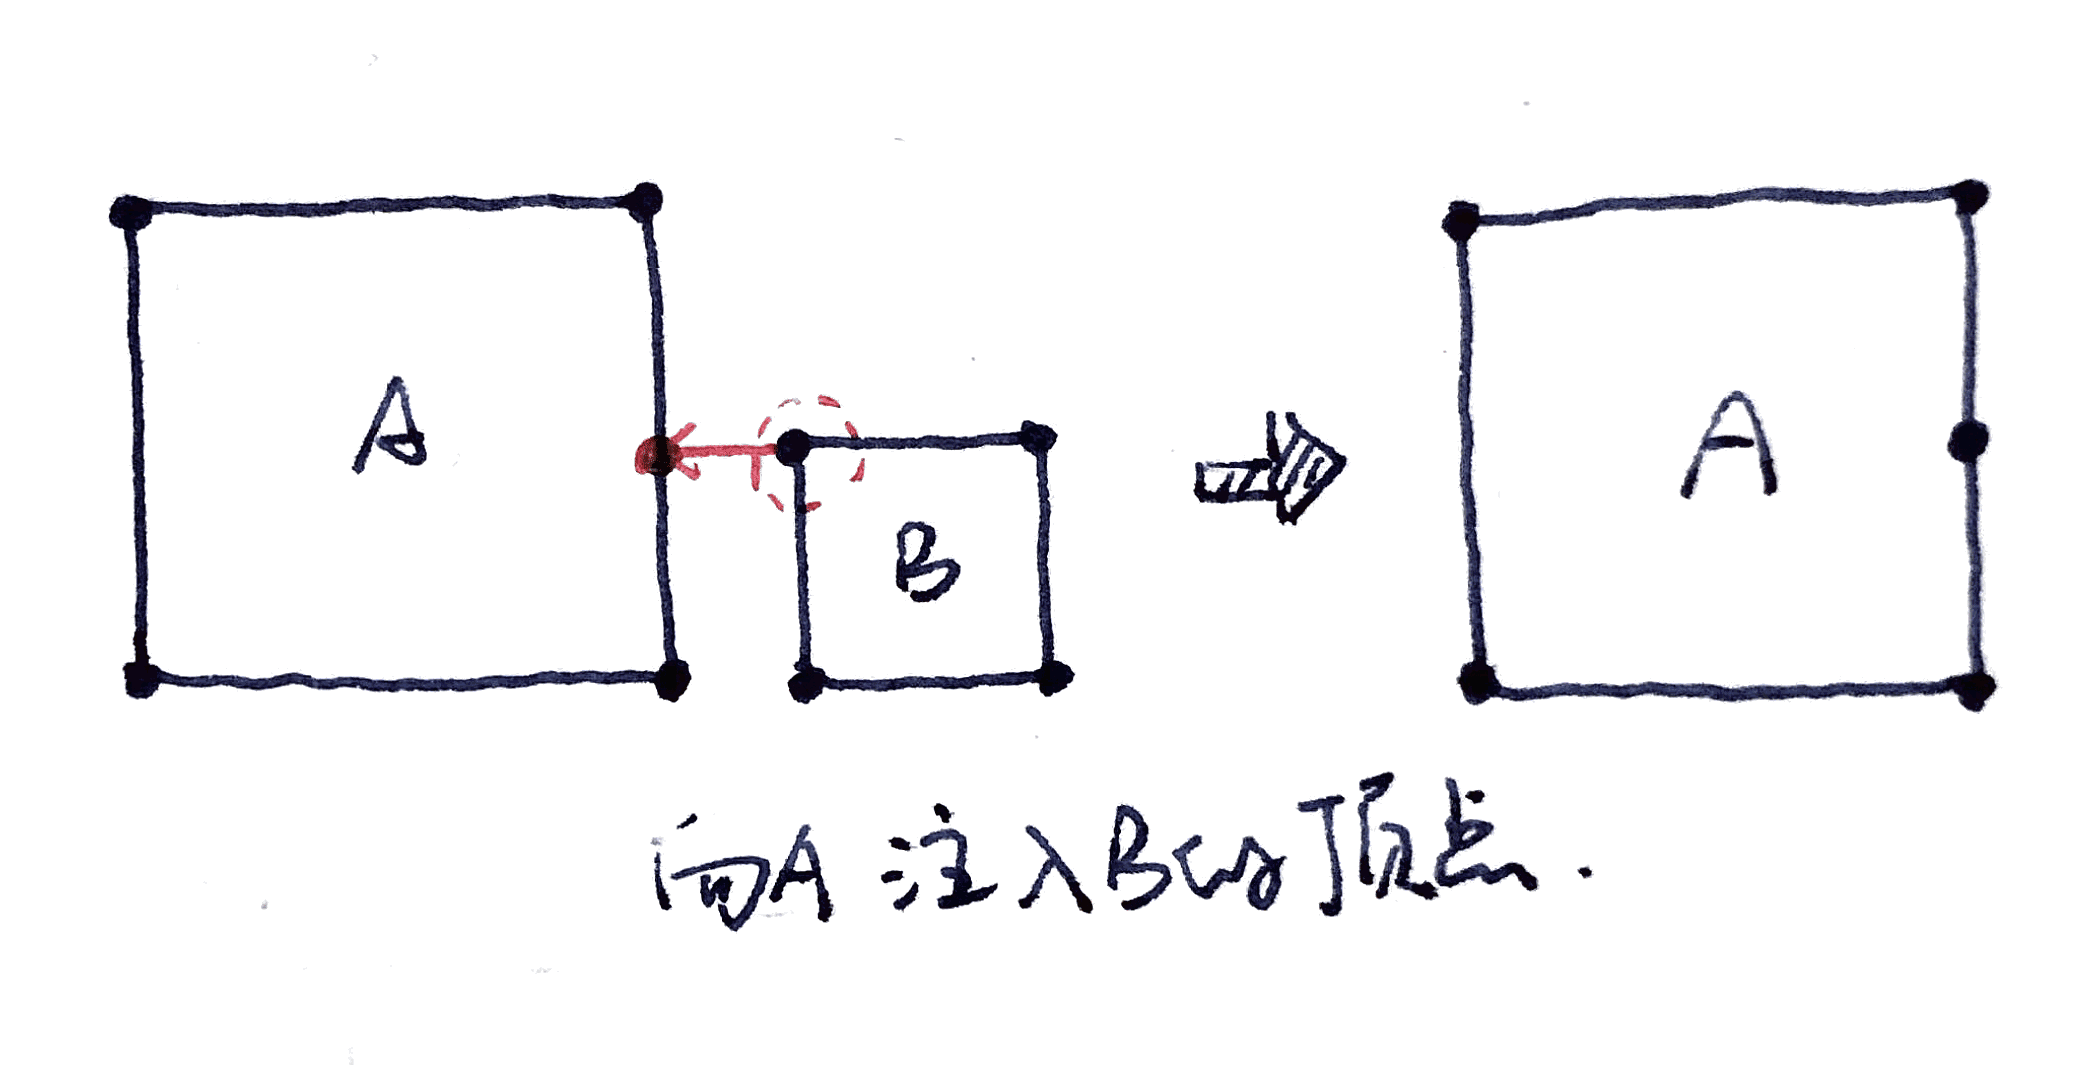 A
B
A
向A注入B的顶点.